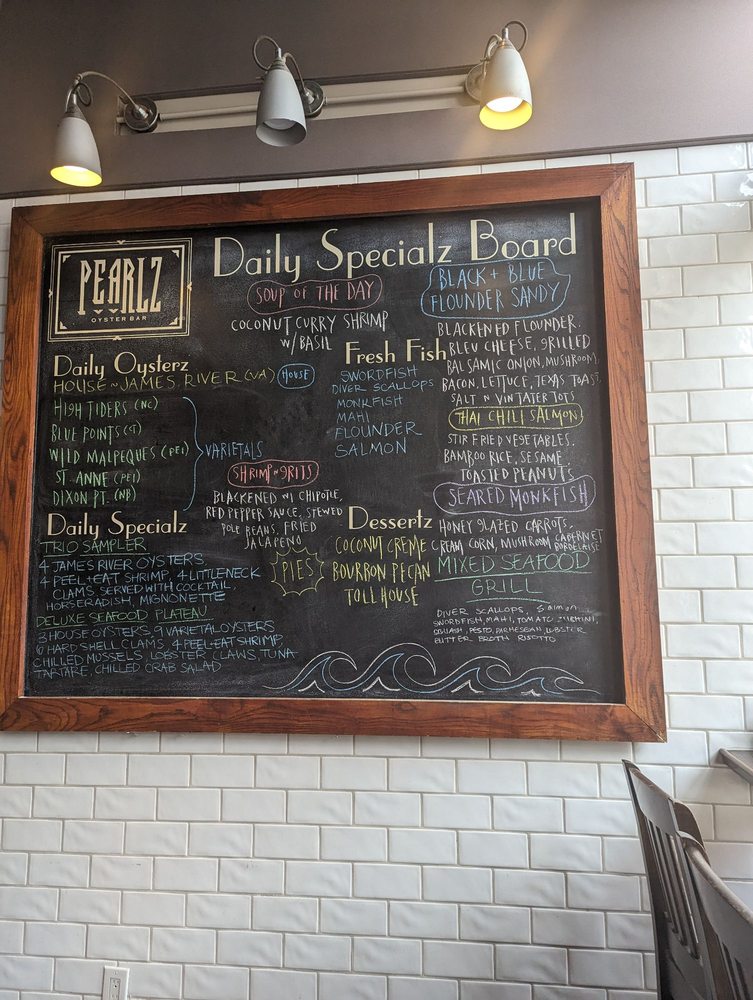 PEARLZ
OYSTER BAR
Daily Specialz Board
SOUP OF THE DAY
COCONUT CURRY SHRIMP
W/ BASIL
Daily Oysterz
HOUSE ~ JAMES RIVER (VA)
HOUSE
HIGH TIDERS (NC)
BLUE POINTS (CT)
WILD MALPEQUES (PEI)
ST. ANNE (PEI)
DIXON PT. (NB)
VARIETALS
Fresh Fish
SWORDFISH
DIVER SCALLOPS
MONKFISH
MAHI
FLOUNDER
SALMON
SHRIMP N GRITS
BLACKENED W/ CHIPOTLE,
RED PEPPER SAUCE, STEWED
POLE BEANS, FRIED
JALAPENO
Daily Specialz
TRIO SAMPLER
4 JAMES RIVER OYSTERS
4 PEEL+EAT SHRIMP, 4 LITTLENECK
CLAMS SERVED WITH COCKTAIL,
HORSERADISH, MIGNONETTE
DELUXE SEAFOOD PLATEAU
3 HOUSE OYSTERS, 9 VARIETAL OYSTERS
6 HARD SHELL CLAMS, 4 PEEL+EAT SHRIMP,
CHILLED MUSSELS, LOBSTER CLAWS, TUNA
TARTARE, CHILLED CRAB SALAD
Dessertz
PIES
COCONUT CREME
BOURBON PECAN
TOLLHOUSE
BLACK + BLUE
FLOUNDER SANDY
BLACKENED FLOUNDER.
BLEU CHEESE, GRILLED
BALSAMIC ONION, MUSHROOM,
BACON, LETTUCE, TEXAS TOAST.
SALT N VIN TATER TOTS
THAI CHILI SALMON
STIR FRIED VEGETABLES,
BAMBOO RICE, SESAME
TOASTED PEANUTS
SEARED MONKFISH
HONEY GLAZED CARROTS,
CREAM CORN, MUSHROOM CABERNET
BORDELAISE
MIXED SEAFOOD
GRILL
DIVER SCALLOPS, Salmon
SWORDFISH, MAHI, TOMATO ZUCCHINI,
SQUASH, PESTO, PARMESEAN LOBSTER
BUTTER BROTH RISOTTO